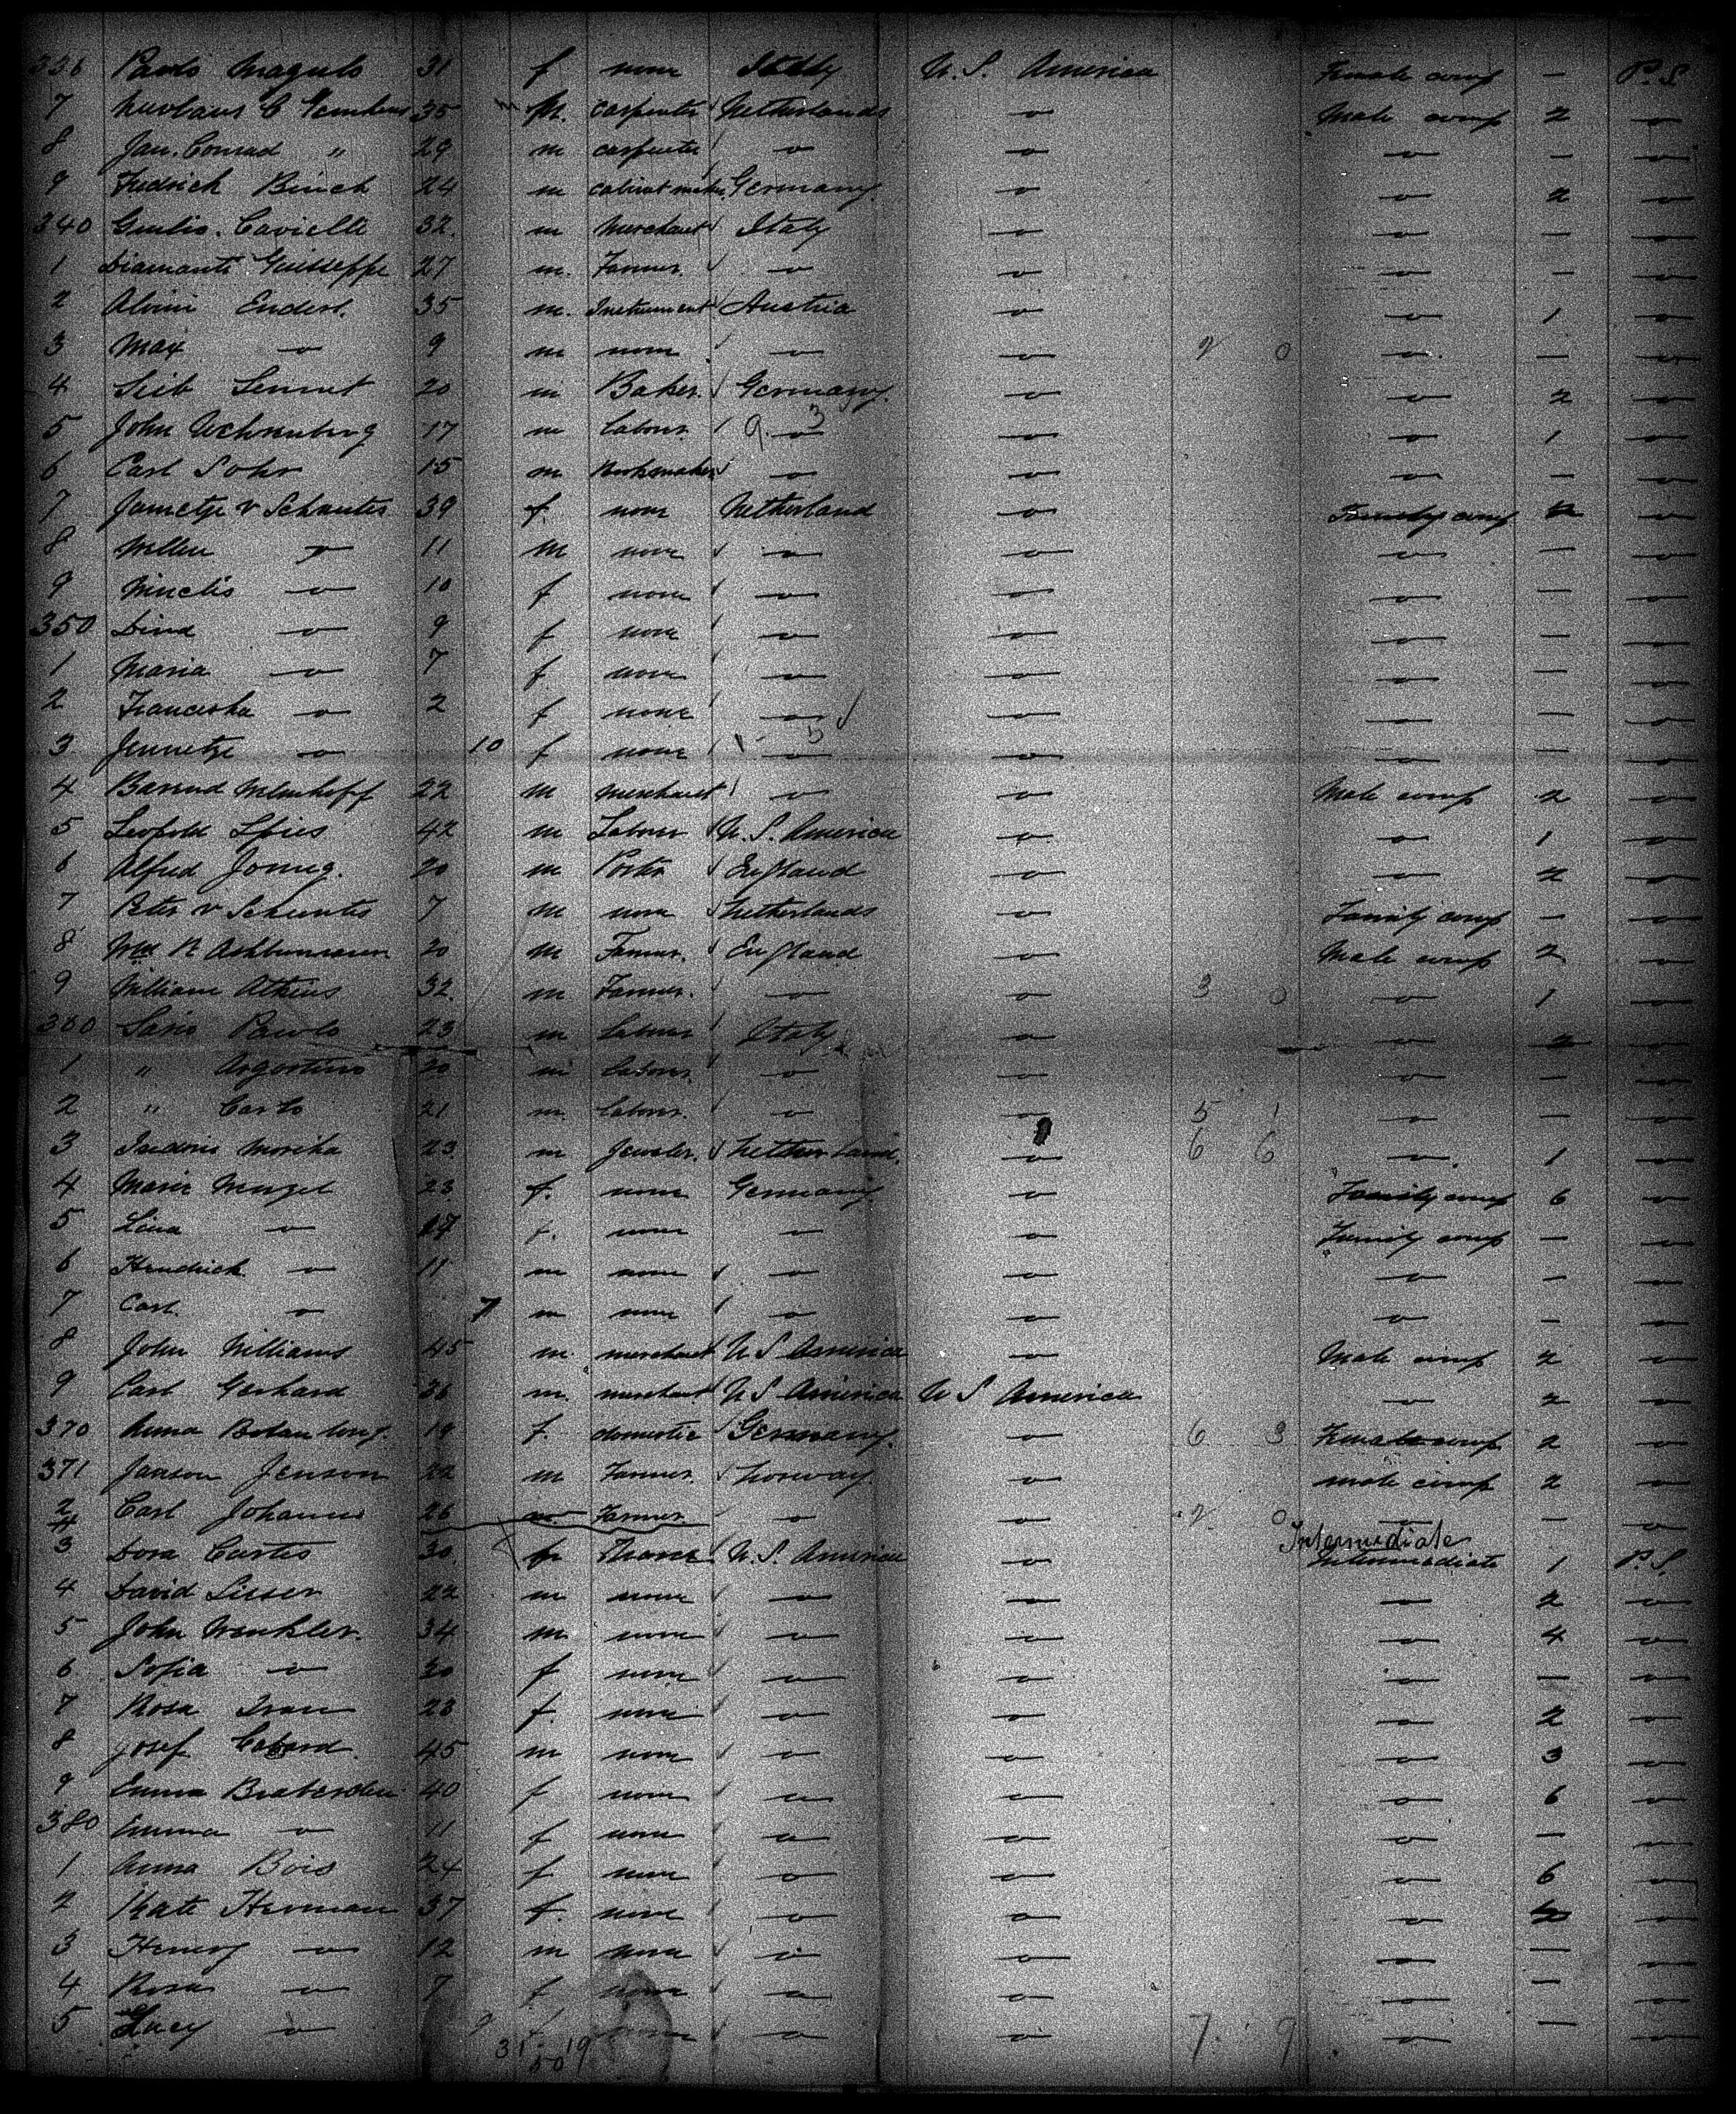 336 Paolo Magulo 31 f none Italy U. S. America Female comp — P. S.
7 35 m M. carpenter Netherlands — o — Male comp 2 — o —
8 Jan. Conrad " 29 m carpenter — o — — o — — o — — — o —
9 Fredrich Binch 24 m cabinet maker Germany. — o — — o — 2 — o —
340 Giulio. Cavielli 32. m Merchant Italy — o — — o — — — o —
1 Diamanti Guisseppe 27 m. Farmer. — o — — o — — o — — — o —
2 Alvini Enderl. 35 m. Instrument Austria — o — — o — 1 — o —
3 Max — o — 9 m none — o — — o — 2 0 — o — — — o —
4 Seib Lennet 20 m Baker. Germany. — o — — o — 2 — o —
5 John Uchrenberg 17 m labour. 9. — o — 3 — o — — o — 1 — o —
6 Carl Sohr 15 m Bookmaker — o — — o — — o — — — o —
7 Jametje v Schantes 39 f. none Netherland — o — Family comp 2 — o —
8 Willem — o — 11 M none — o — — o — — o — — — o —
9 — o — 10 f none — o — — o — — o — — — o —
350 Dina — o — 9 f none — o — — o — — o — — — o —
1 Maria — o — 7 f. none — o — — o — — o — — — o —
2 Franceska — o — 2 f none — o — — o — — o — — — o —
3 Jennetje — o — 10 f none — o — 5 — o — — o — — — o —
4 Barend Melmhoff 22 M merchant — o — — o — Male comp 2 — o —
5 Leopold Spies 42 m Labour U. S. America — o — — o — 1 — o —
6 Alfred Jonng. 20 m Porter England — o — — o — 2 — o —
7 Peter v Schuntes 7 M none Netherlands — o — Family comp — — o —
8 Wm R 20 M Farmer. England — o — Male comp 2 — o —
9 William Atkins 32. m Farmer. — o — — o — 3 0 — o — 1 — o —
360 Sario Paolo 23 m labour Italy — o — — o — 2 — o —
1 " Argostino 20 m labour. — o — — o — — o — — — o —
2 " Carlo 21 m. labour. — o — — o — 5 1 — o — — — o —
3 Isidoris Morika 23. m Jeweler. Netherland. — o — 6 6 — o — 1 — o —
4 Marie Mengel 23 f. none Germany — o — Family comp 6 — o —
5 Lina — o — 17 f. none — o — — o — Family comp — — o —
6 Hendrick — o — 11 m none — o — — o — — o — — — o —
7 Carl. — o — 7 m none — o — — o — — o — — — o —
8 John Williams 45 m. merchant U S America — o — Male comp 2 — o —
9 Carl Gerhard 36 m. merchant U S America U S America — o — 2 — o —
370 Anna 19 f. domestic Germany. — o — 6 3 Female comp 2 — o —
371 Janson Jenson 22 m Farmer. Norway. — o — male comp 2 — o —
2 Carl Johann 26 m Farmer. — o — — o — 2 0 — o — — — o —
Intermediate
3 Dora Curtis 30. U. S. America — o — Intermediate 1 P. S.
4 David Lisser 22 m none — o — — o — — o — 2 — o —
5 John Wenkler. 34 m. none — o — — o — — o — 4 — o —
6 Sofia — o — 30 f none — o — — o — — o — — — o —
7 Rosa Iran 23 f. none — o — — o — — o — 2 — o —
8 Josef Cabard. 45 m none — o — — o — — o — 3 — o —
9 Emma Braberden 40 f none — o — — o — — o — 6 — o —
380 Emma — o — 11 f none — o — — o — — o — — — o —
1 Anna Bois 24 f none — o — — o — — o — 6 — o —
2 Kate Herman 37 f. none — o — — o — — o — — o —
3 Henry — o — 12 m none — o — — o — — o — — — o —
4 Rosa — o — 7 f none — o — — o — — o — — — o —
5 Lucy — o — 9 f none — o — — o — 7. 9 — o — — — o —
31 19
50